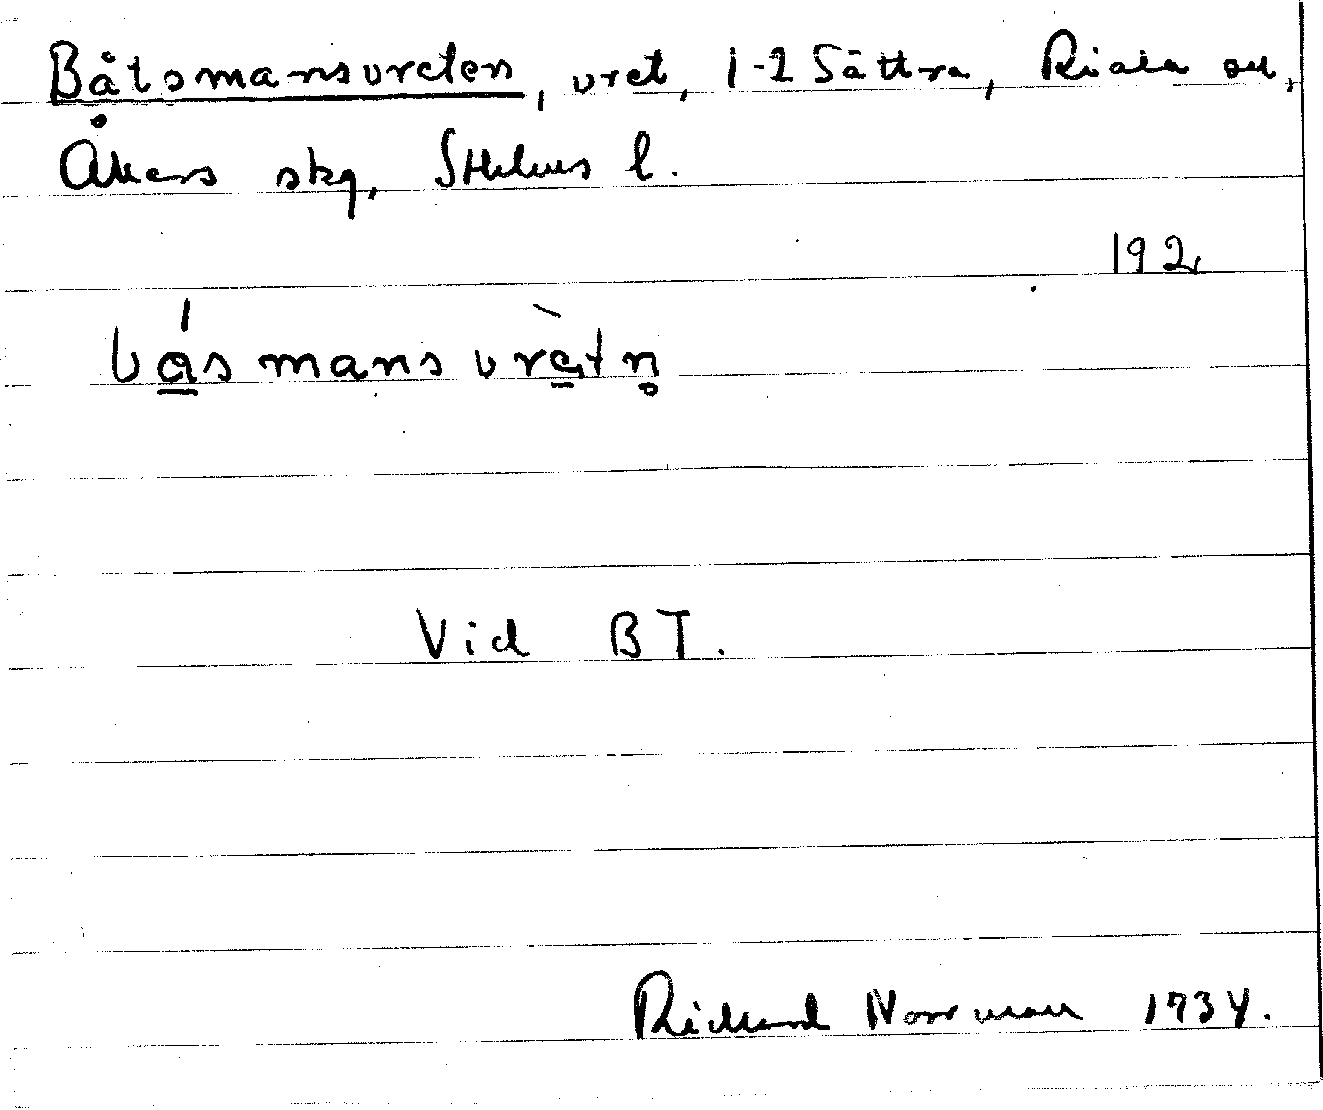 Båtsmansvreten, vret, 1-2 Sättra, Riala sn,
Åkers skg, Sthlms l.
192
bǻsmansvrètn̥
Vid BT.
Rickard Norrman 1934.